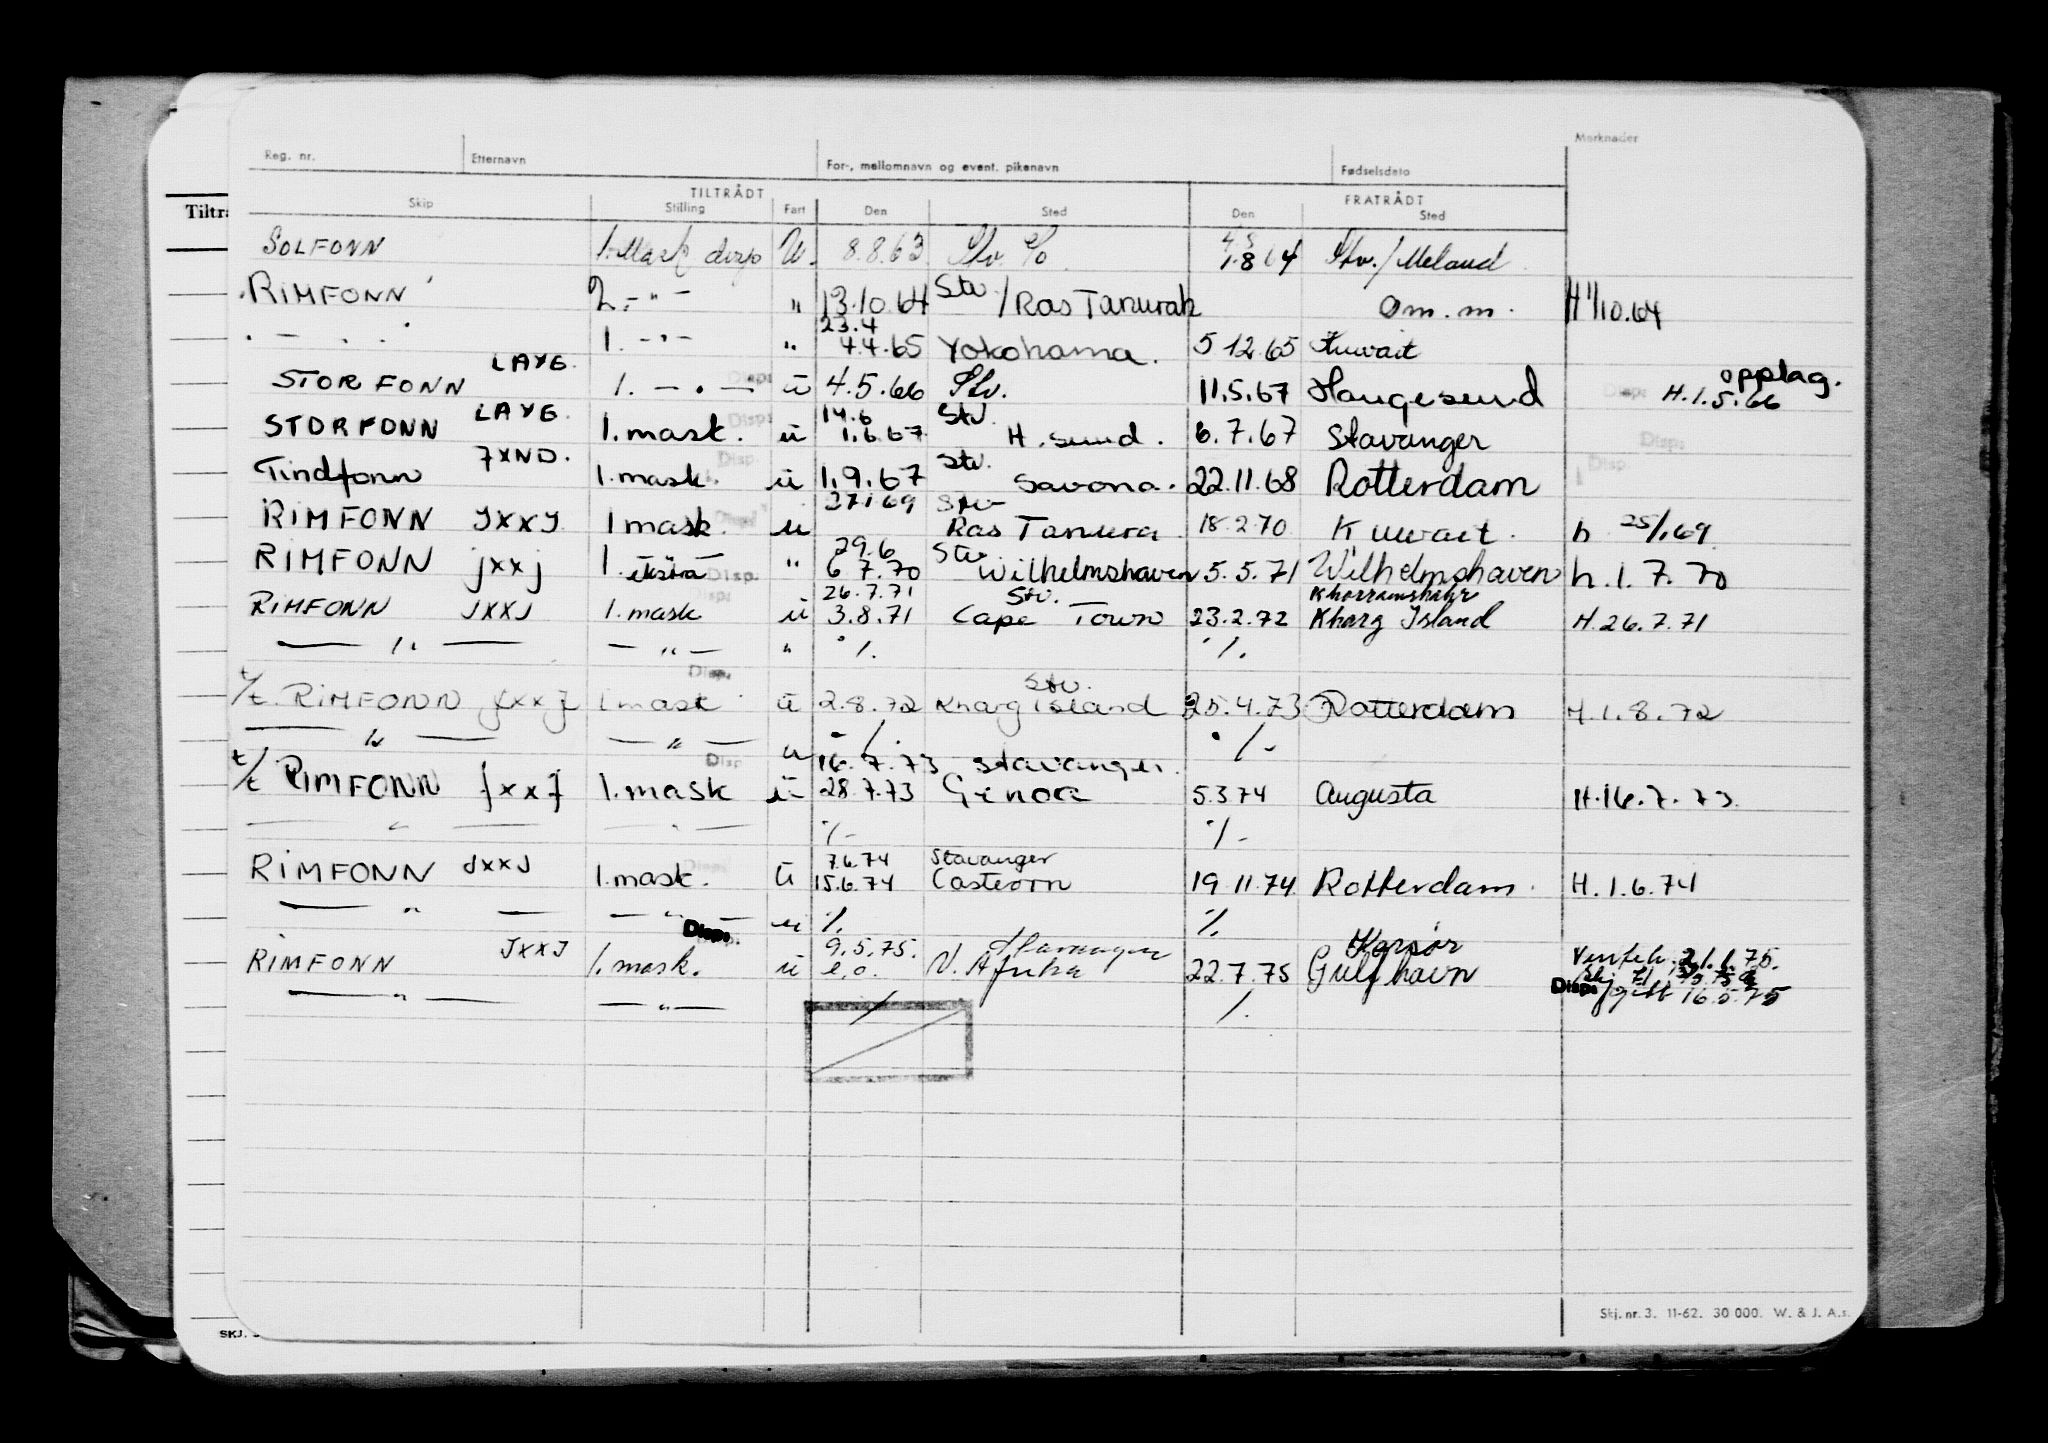 Merknader
Reg. nr. Etternavn For-, mellomnavn og event. pikenavn Fødselsdato
TILTRÅDT FRATRÅDT
Tiltr
Skip Stilling Fart Den Sted Den Sted
SOLFONN 1. Mask disp U. 8.8.63 Stv. Stv./Meland
RIMFONN 2. - " - " 13.10.64 Stv/Ras Tanurah Om.m. H 1/10.64
- " - 1. - " - " 23.4 4.4.65 Yokohama. 5 12.65 Kuwait
STORFONN LAYG. 1. - " - Disp: ü 4.5.66 Stv. 11.5.67 Haugesund Disp: H.1.5.66 opplag.
STORFONN LAYG. 1. mask. Disp: ü 14.6 1.6.67 Stv. H.sund. 6.7.67 Stavanger Disp:
Tindfonn JXND. 1. mask. Disp. ü 1.9.67 Stv. Savona. 22.11.68 Rotterdam Disp.
RIMFONN JXXJ 1 mask. Disp! ü 27.1.69 Stv Ras Tanura 18.2.70 Kuwait. h 25/1.69.
RIMFONN jxxj 1. - " - ekstra Disp. " 29.6 6 7.70 Stv Wilhelmshaven 5.5.71 Wilhelmshaven h.1.7.70
RIMFONN JXXJ 1. mask Disp: ü 26.7.71 3.8.71 Stv. Cape Town 23.2.72 Khorramshahr Kharg Island H.26.7.71
— " — — " — " %. %.
t/t. RIMFONN JXXJ 1. mask Disp. ü 2.8.72 Stv. Kharg Island 25.4.73 Rotterdam H.1.8.72
— " — — " — ü %. %-
t/t RIMFONN JXXJ 1. mask Disp ü 16.7.73 Stavanger. 28.7.73 Genoa 5.3.74 Augusta H.16.7.73.
— " — — " — %- %-
RIMFONN JXXJ 1. mask. Disp! ü 7.6.74 Stavanger 15.6.74 19 11.74 Rotterdam. H.1.6.74
— " — — " — ü %. %.
RIMFONN JXXJ 1. mask. Disp: ü 9.5.75. Stavanger e.o. V. Afrika 22.7.75 Korsør Gulfhavn 21.1.75.
Disp: gitt 16.5.75
— " — — " — % %.
Skj. nr. 3. 11-62. 30 000. W. & J. A.s.
SKJ.